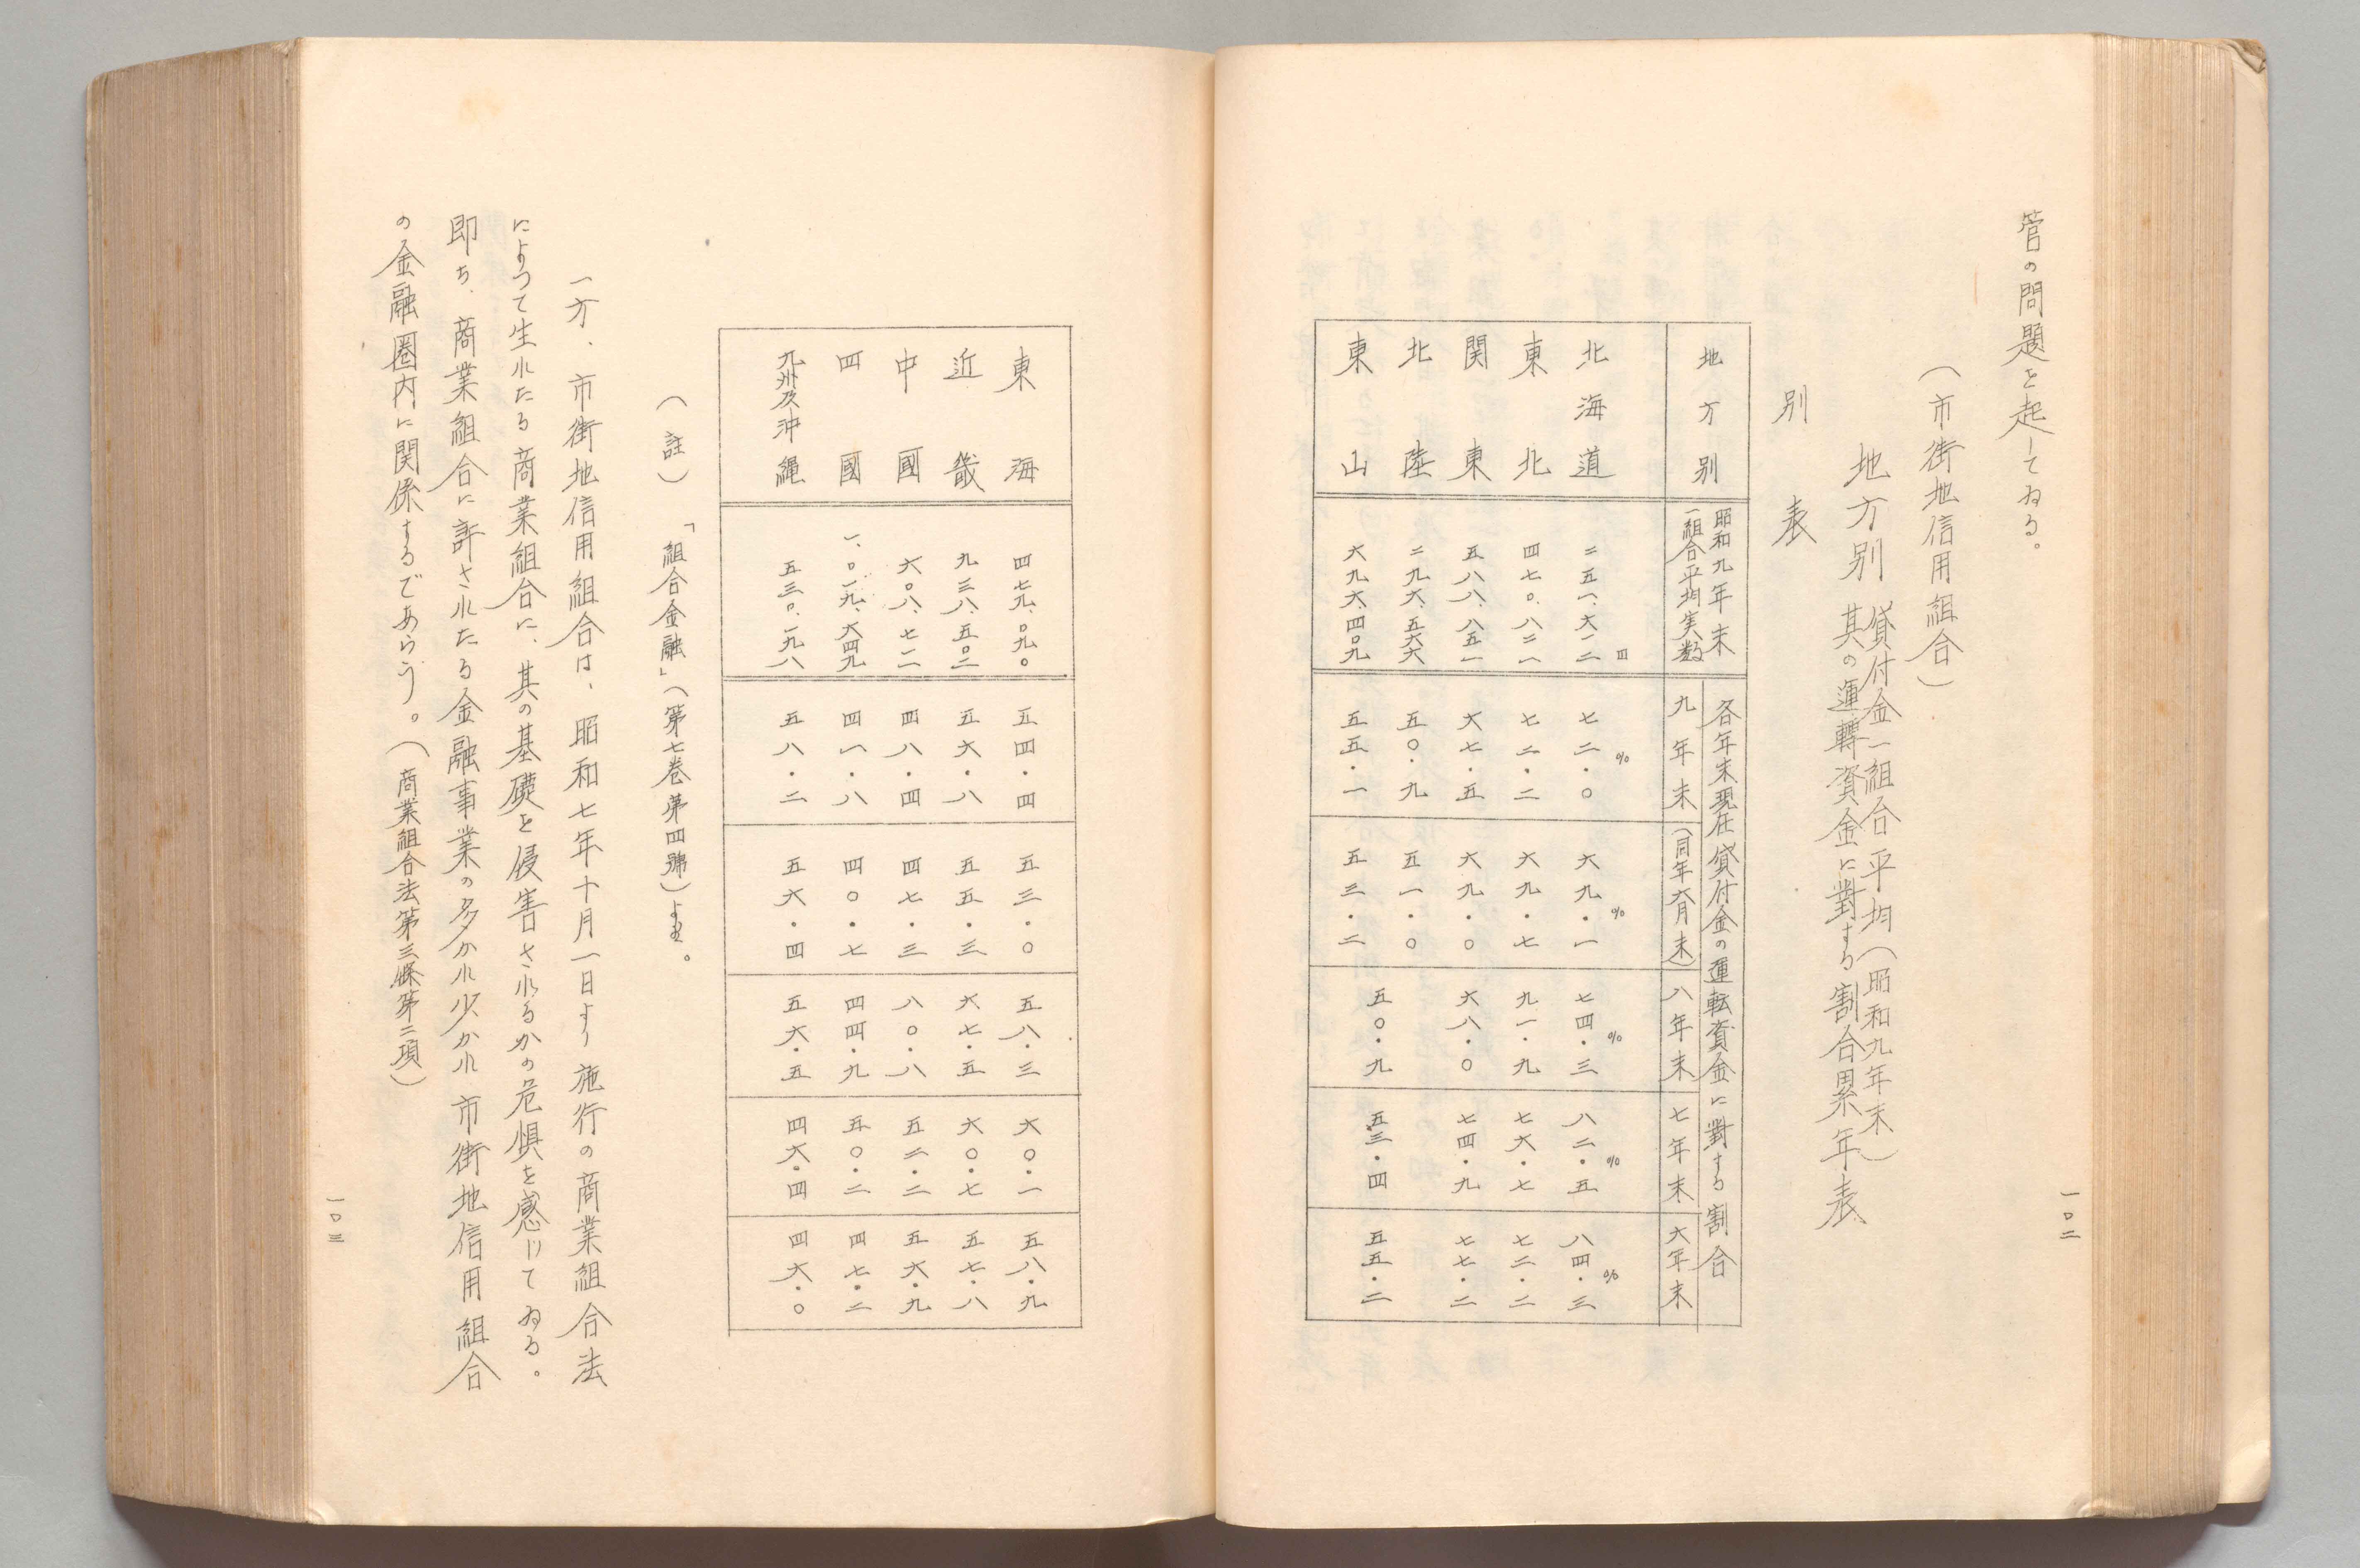 管の問題を起してゐる。
(市街地信用組合)
地方別 貸付金一組合平均(昭和九年末)
其の運轉資金に對する割合累年表
別表
地方別
昭和九年末
一組合平均実数
各年末現在貸付金の運転資金に對する割合
九年末
(同年六月末)
八年末
七年末
六年末
北海道 二五一、六一二円 七二・〇% 六九・一% 七四・三% 八二・五% 八四・三%
東北 四七〇、八二一 七二・二 六九・七 九一・九 七六・七 七二・二
関東 五八八、八五一 六七・五 六九・〇 六八・〇 七四・九 七七・二
北陸 二九六、五六六 五〇・九 五一・〇
東山 六九六、四〇九 五五・一 五三・二
五〇・九 五三・四 五五・二
一〇二
東海 四七九、〇九〇 五四・四 五三・〇 五八・三 六〇・一 五八・九
近畿 九三八、五〇二 五六・八 五五・三 六七・五 六〇・七 五七・八
中國 六〇八、七一一 四八・四 四七・三 八〇・八 五二・二 五六・九
四國 一、〇一九、六四九 四一・八 四〇・七 四四・九 五〇・二 四七・二
九州及沖縄 五三〇、一九八 五八・二 五六・四 五六・五 四六・四 四六・〇
(註) 「組合金融」(第七巻第四號)よる。
一方、市街地信用組合は、昭和七年十月一日より施行の商業組合法
によつて生れたる商業組合に、其の基礎を侵害されるかの危惧を感じてゐる。
即ち、商業組合に許されたる金融事業の多かれ少かれ市街地信用組合
の金融圏内に関係するであらう。(商業組合法第三條第二項)
一〇三